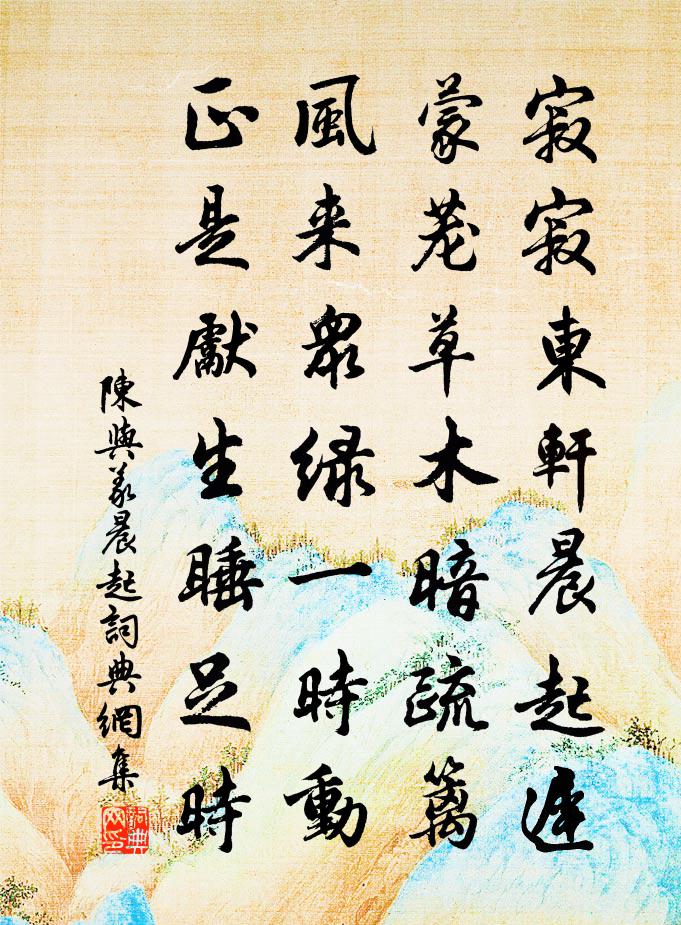 寂寂東軒晨起遲
蒙茏草木暗疏篱
風来眾綠一時動
正是獻生睡足時
陳與義晨起詞典網集
詞典网印